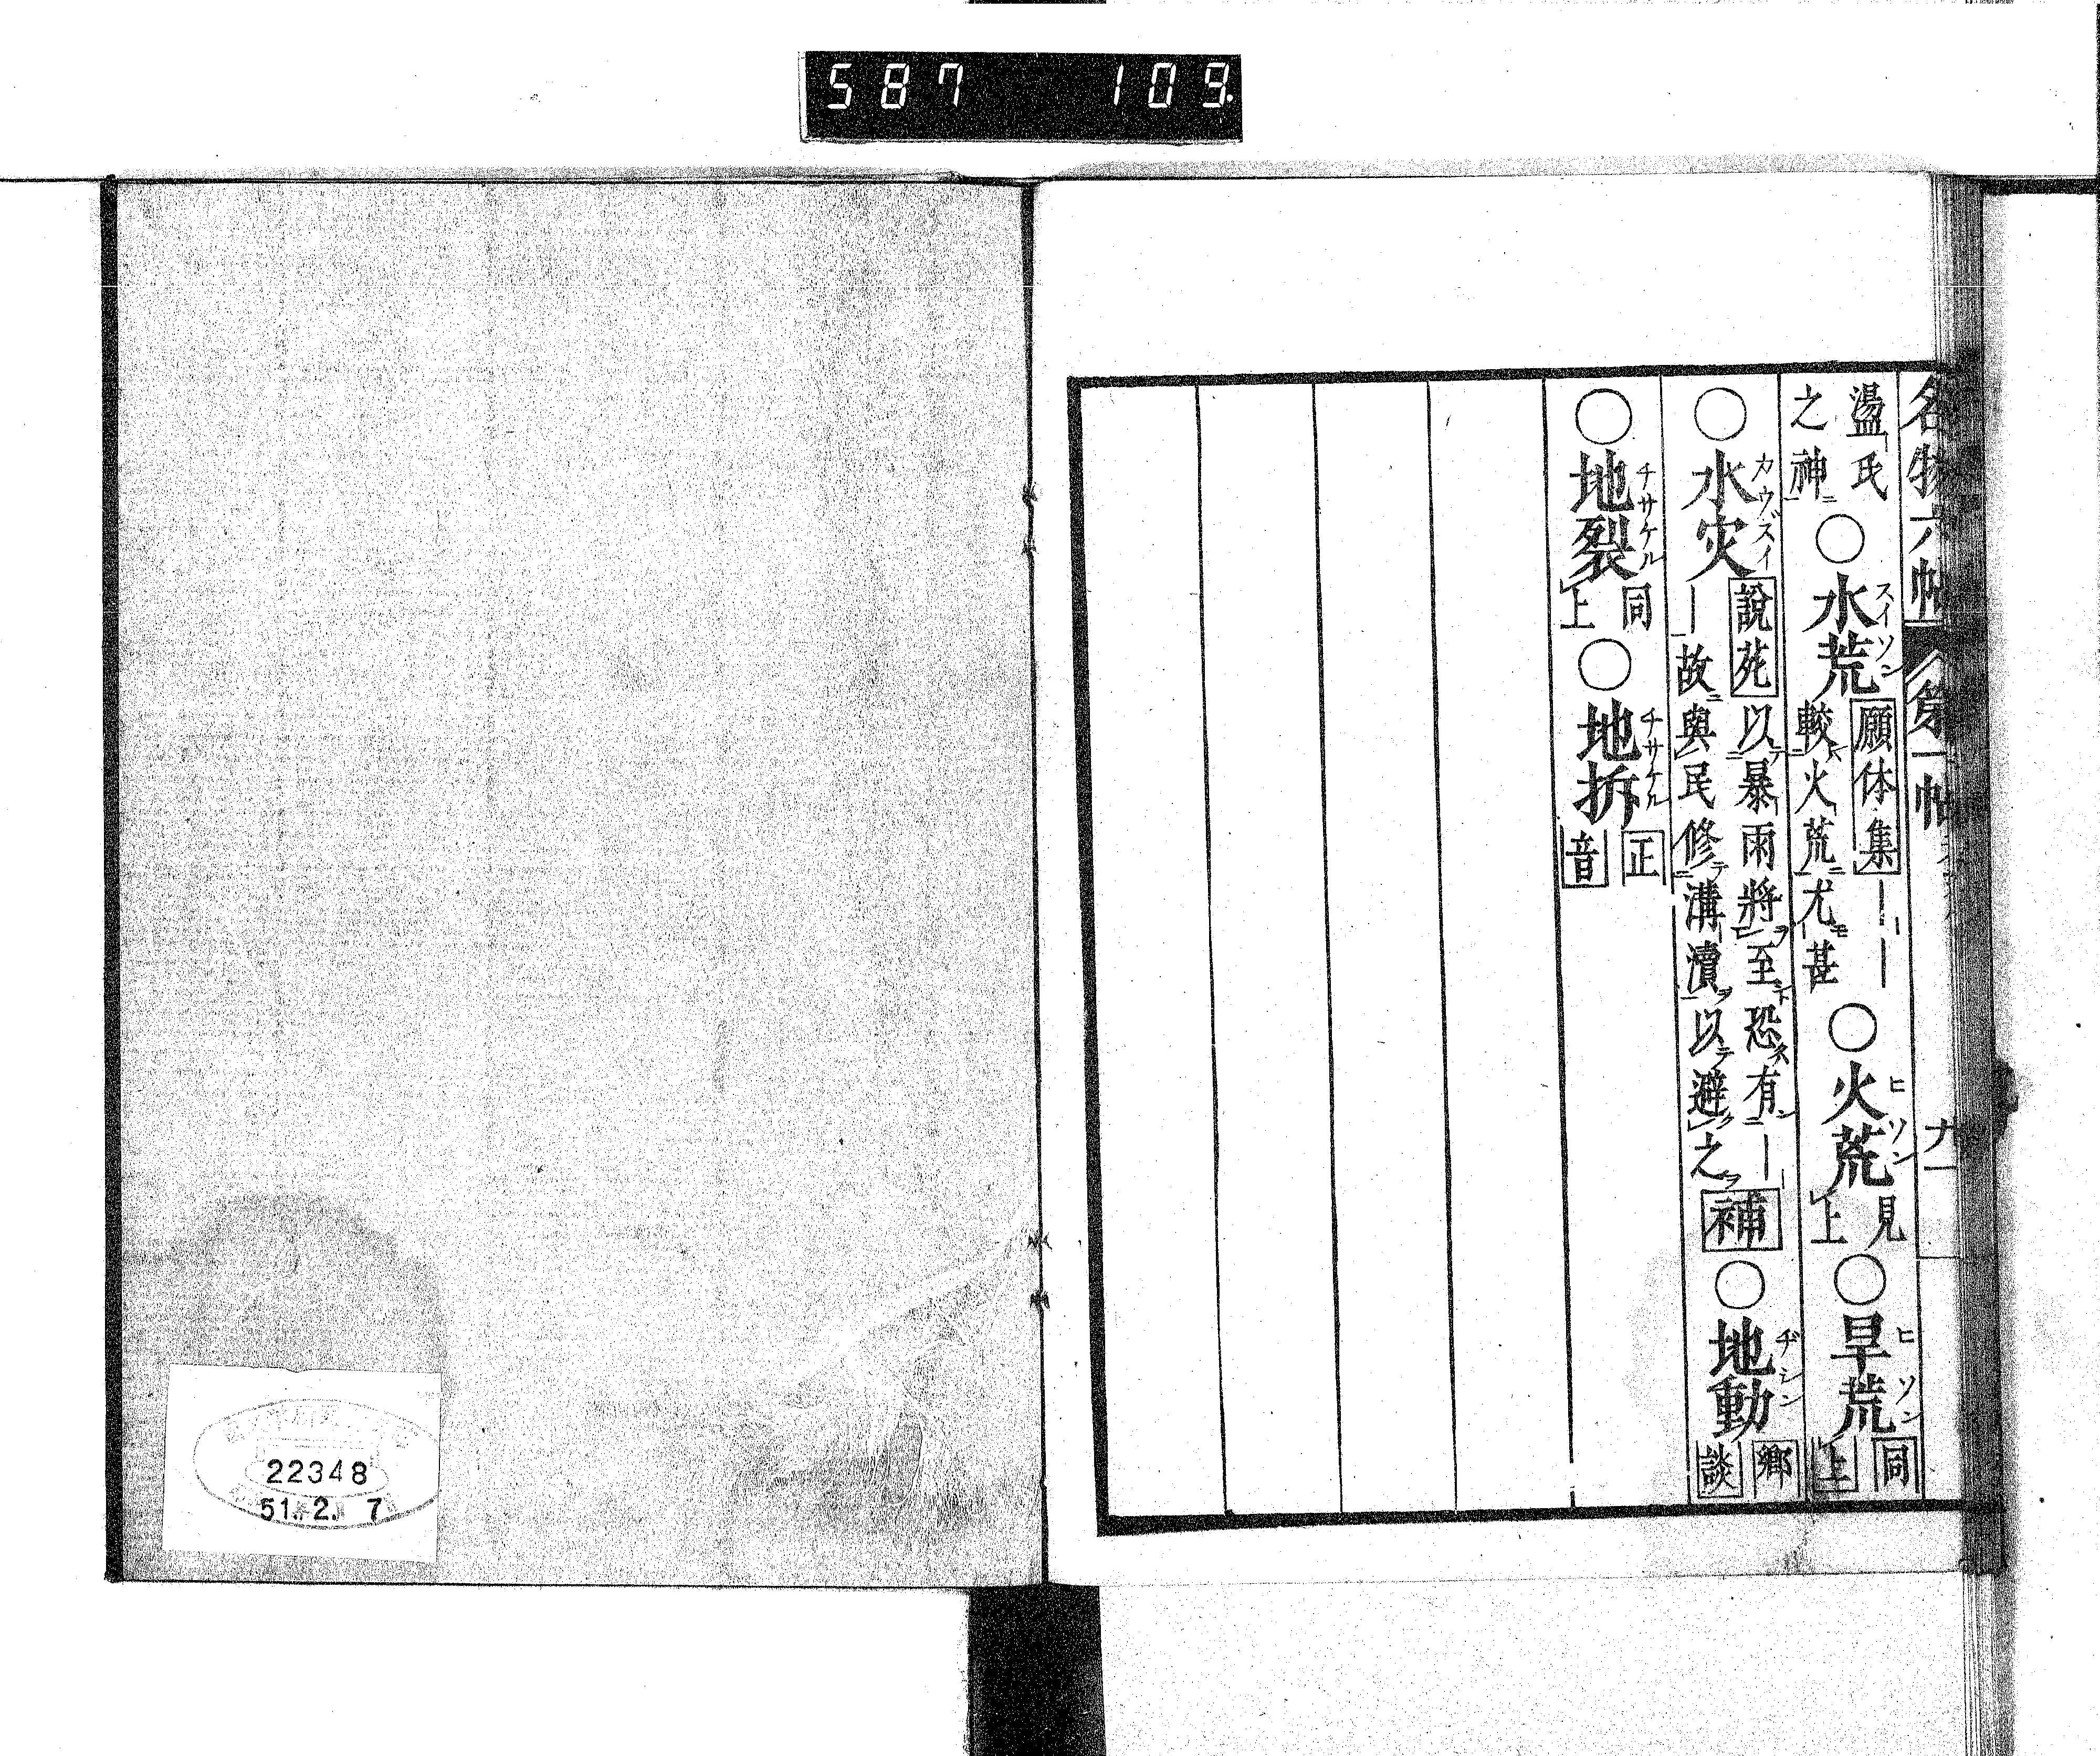 587 109.
名物六帖 第一帖 九一
盪氏
之神ニ
○水荒スイソン
願体集――ハ
較火荒ニ尤モ甚
○火荒ヒソン
見
上
○旱荒ヒソン
同
上
○水灾カウズイ
說苑以テ暴雨將ヲ至ント恐ス有ンニ―
―故ニ與民修テ溝瀆ヲ以テ避ク之ヲ
補
○地動ヂシン
鄉
談
○地裂チサケル
同
上
○地拆チサケル
正
音
22348
51.2.7